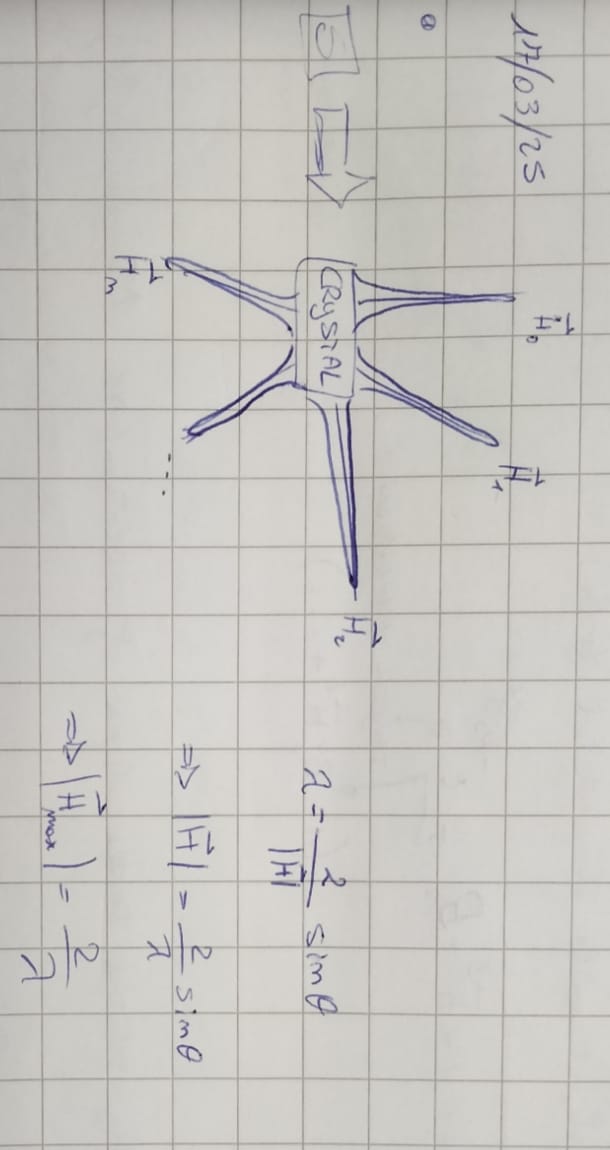 17/03/25
H⃗₀
H⃗₁
S
CRYSTAL
H⃗₂
H⃗ₙ
...
λ = 2/|H⃗| sinθ
=> |H⃗| = 2/λ sinθ
=> |H⃗max| = 2/λ